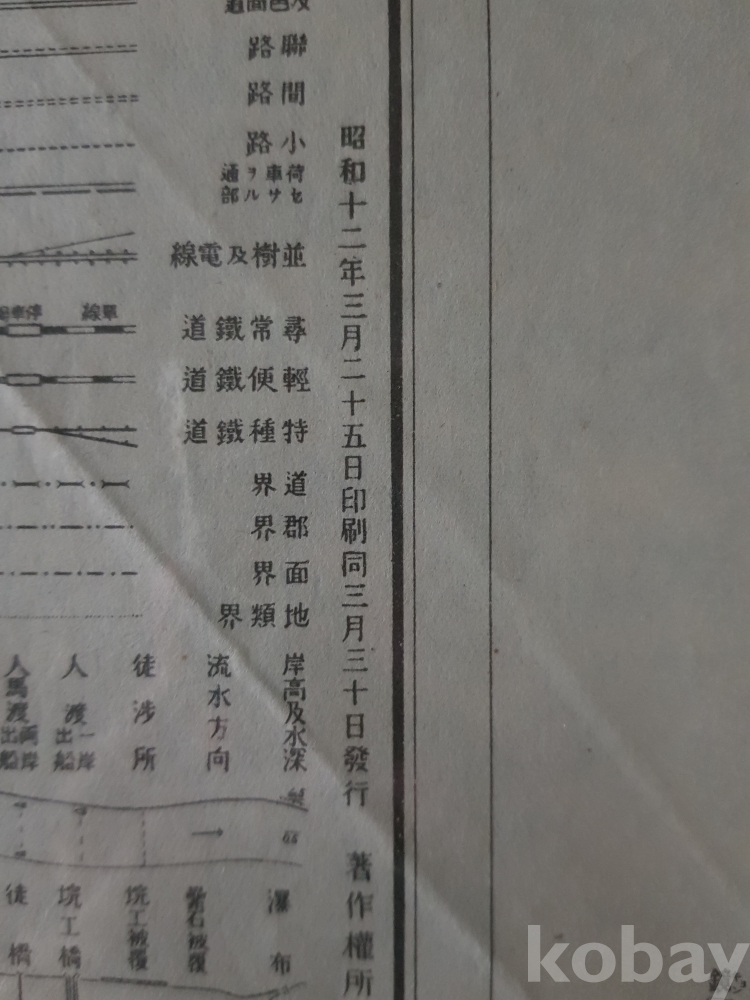 昭和十二年三月二十五日印刷同三月三十日發行 著作權所
路聯
路間
路小
荷車ヲ通
セサル部
線電及樹並
停車場
線單
道鐵常尋
道鐵便輕
道鐵種特
界道
界郡
界面
界類地
岸高及水深
流水方向
徒涉所
人渡
一岸
出船
人馬渡
兩岸
出船
瀑布
被覆
垸工被覆
垸工橋
徒橋
kobay